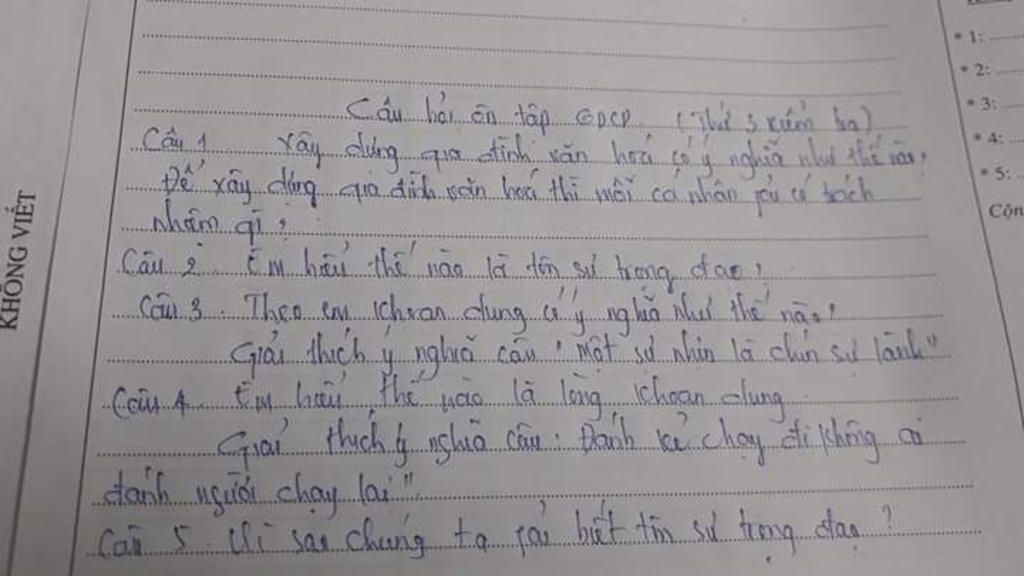 Câu hỏi ôn tập GDCD. (Thứ 3 kiểm tra)
Câu 1 Xây dựng gia đình văn hoá có ý nghĩa như thế nào?
Để xây dựng gia đình văn hoá thì mỗi cá nhân có trách
nhiệm gì?
Câu 2 Em hiểu thế nào là tôn sư trọng đạo?
Câu 3. Theo em khoan dung có ý nghĩa như thế nào?
Giải thích ý nghĩa câu "Một sự nhịn là chín sự lành"
Câu 4. Em hiểu thế nào là lòng khoan dung
Giải thích ý nghĩa câu: Đánh kẻ chạy đi không ai
đánh người chạy lại"
Câu 5. Vì sao chúng ta biết tôn sư trọng đạo?
KHÔNG VIẾT
* 1:
* 2:
* 3:
* 4:
* 5: